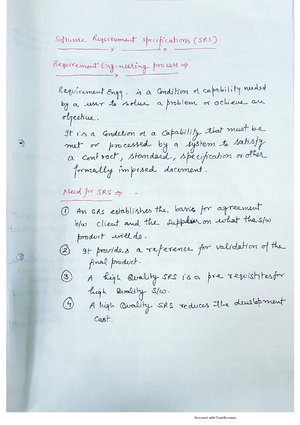 Software Requirement Specifications (SRS)
Requirement Engineering process →
Requirement Engg. is a Condition or capability needed
by a user to solve a problem or achieve an
objective.
It is a Condition or a Capability that must be
met or processed by a system to satisfy
a contract, standard, specification or other
formally imposed document.
Need for SRS →
① An SRS establishes the basis for agreement
b/w client and the supplier on what the s/w
product will do.
② It provides a reference for validation of the
final product.
③ A high Quality SRS is a pre requisites for
high Quality S/w.
④ A high Quality SRS reduces the development
Cost.
Scanned with CamScanner